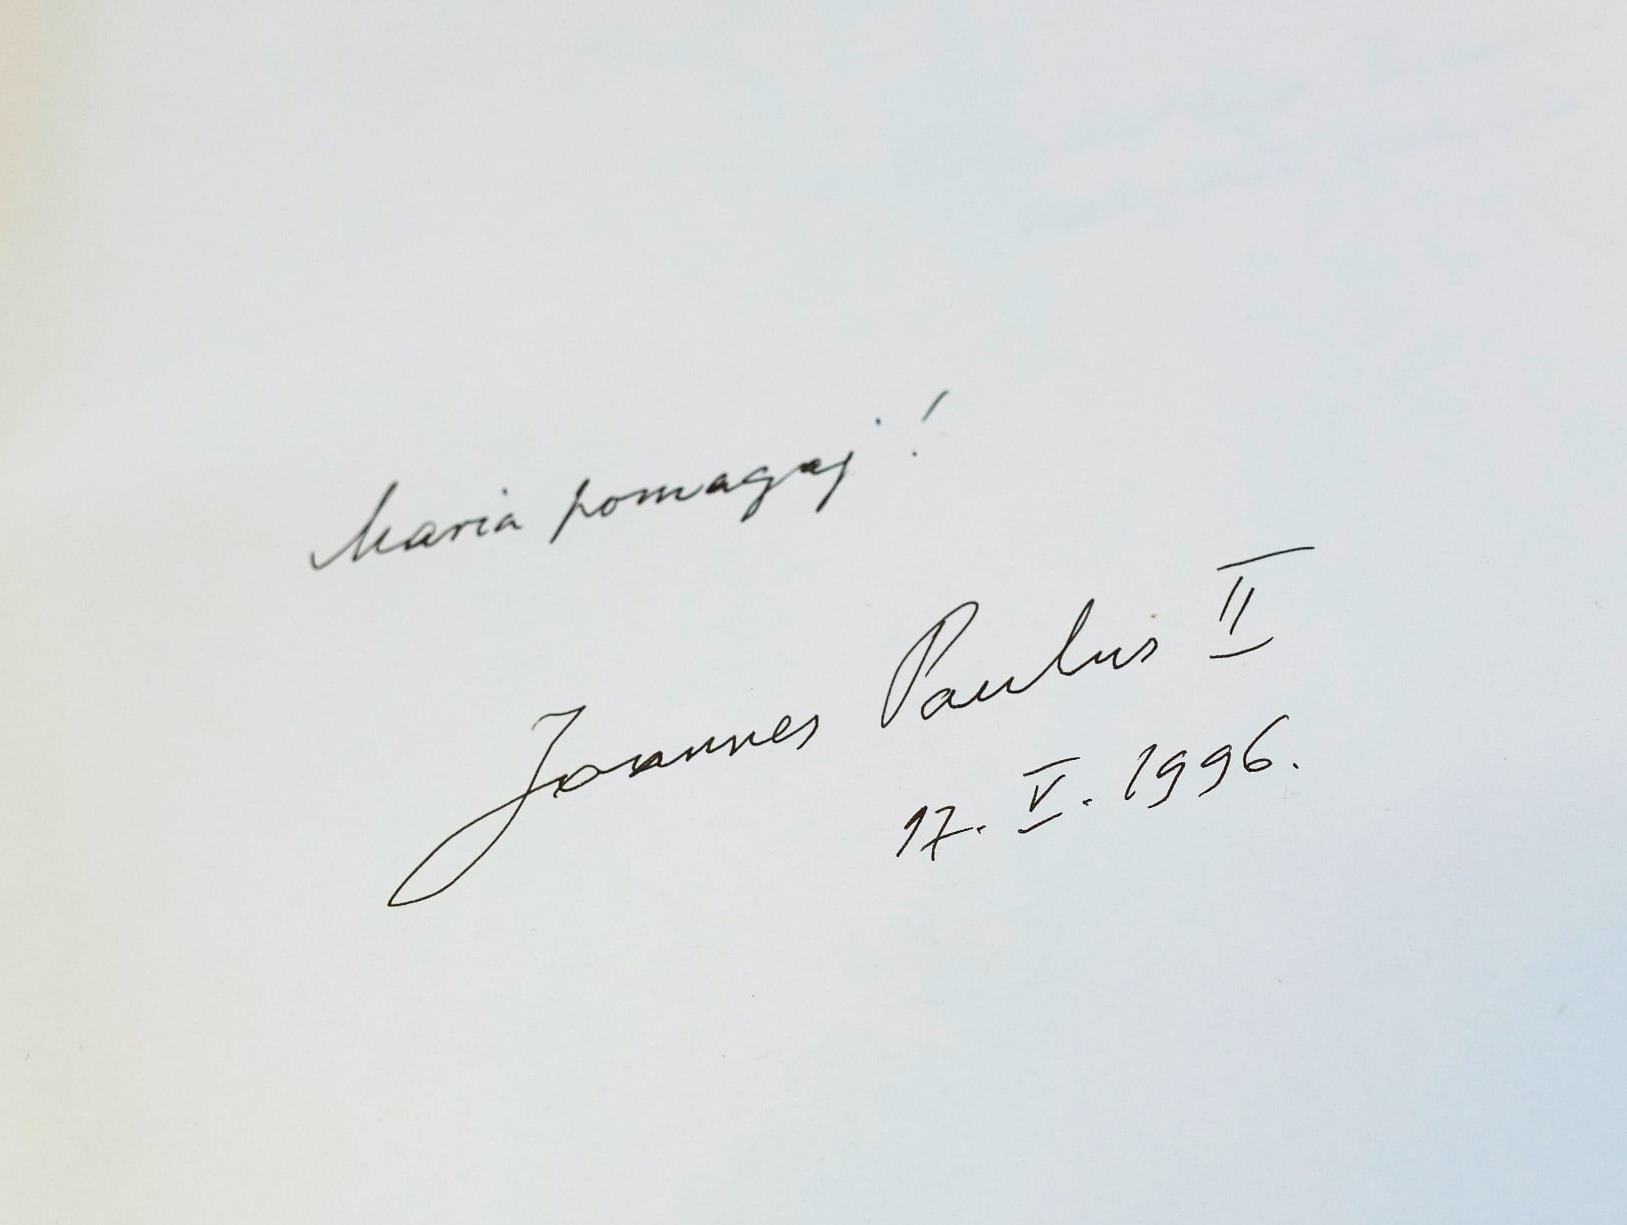 Maria pomagaj!
Joannes Paulus II
17. V. 1996.